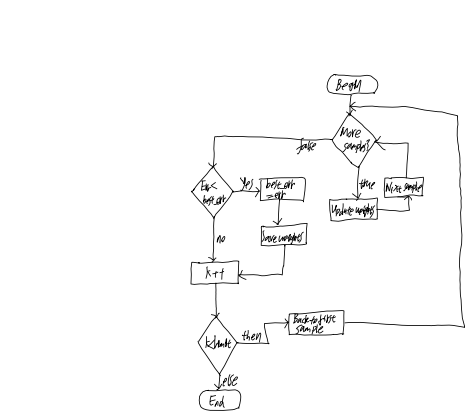 Begin
More
samples?
false
true
Update weights
Next sample
Err<
best_err
Yes
best_err
=err
Save weights
no
k++
k<limit
then
Back to first
sample
else
End